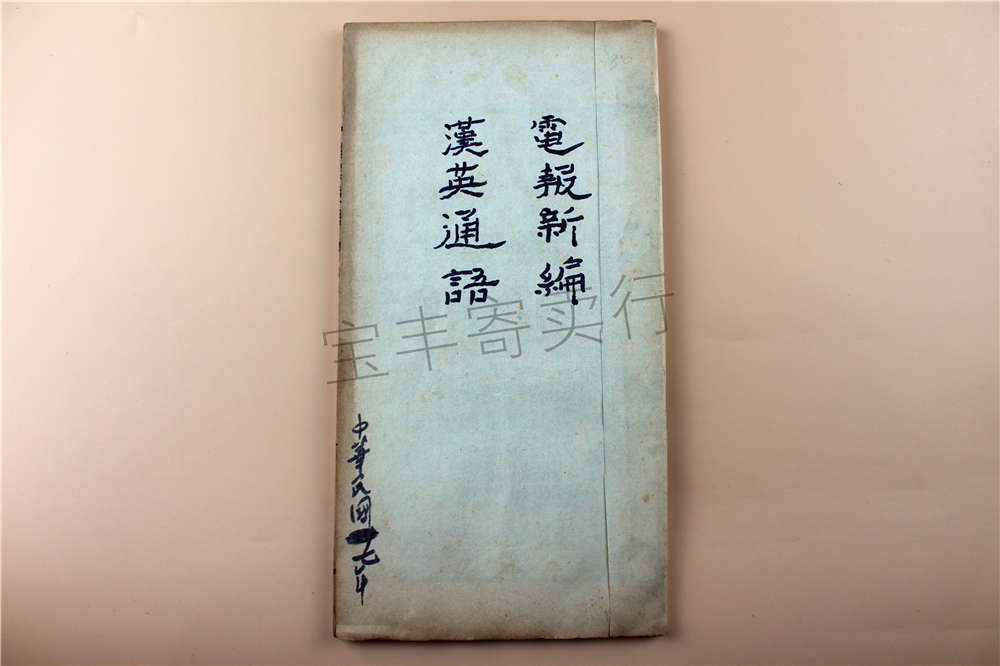 電報新編
漢英通語
中華民國七年
宝丰寄卖行